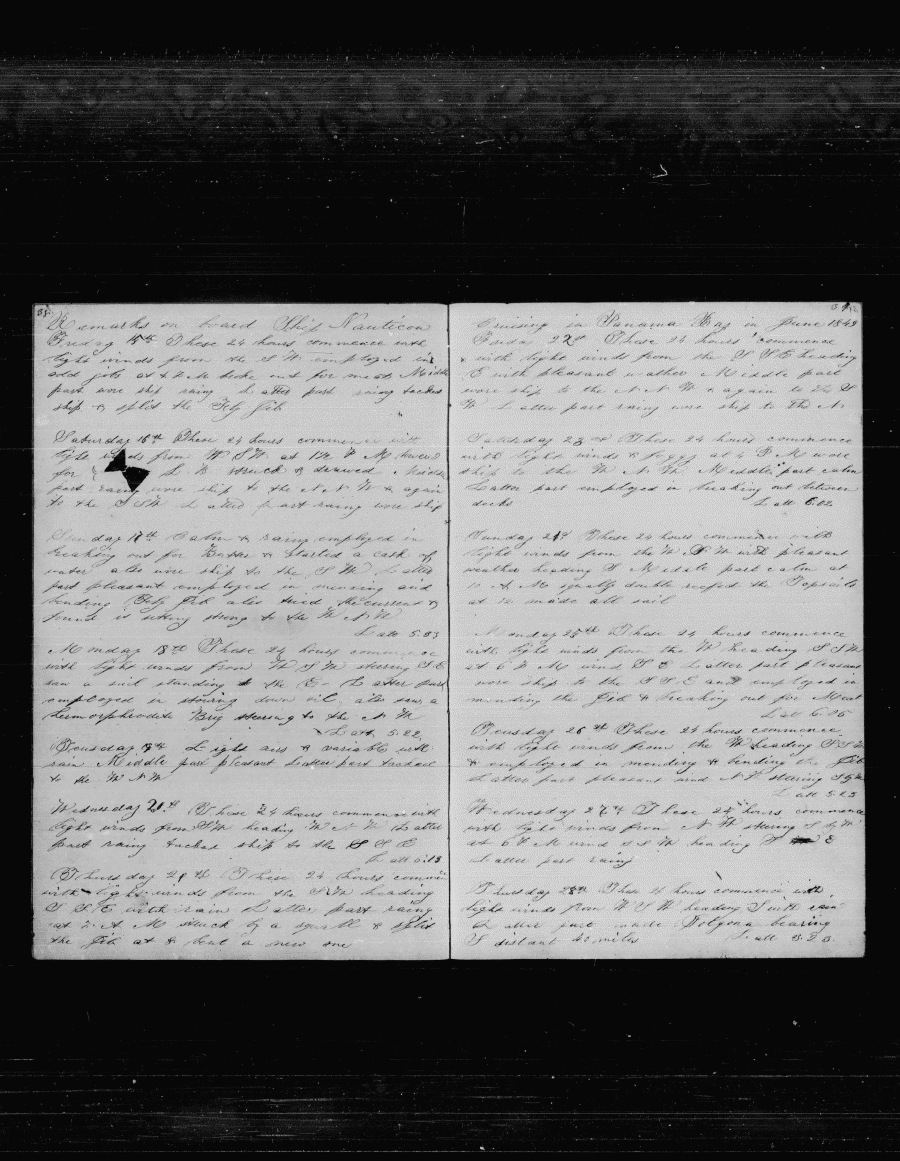 Remarks on board Ship Nauticon
Friday 15th These 24 hours commence with
light winds from the S W employed in
odd jobs at 4 P M broke out for meat Middle
part wore ship rainy Latter part rainy tacked
ship & split the Fly Jib
Saturday 16th These 24 hours commence with
light winds from W S W at 12 P M lowered
for L W struck & Middle
part rainy wore ship to the N N W & again
to the S S W Latter part rainy wore ship
Sunday 17th Calm & rainy employed in
breaking out for Water & started a cask of
water also wore ship to the S W Latter
part pleasant employed in mending and
bending Fly Jib also tried the current &
found it seting strong to the W N W
Latt 5.53
Monday 18th These 24 hours commence
with light winds from W S W steering S E
saw a sail standing to the E Latter part
employed in stowing down oil, also saw a
hermorphrodite Brig steering to the N W
Latt 5.22
Teusday 19th Light airs & variable with
rain Middle part pleasant Latter part tacked
to the W N W
Wednesday 20th These 24 hours commence with
light winds from S W heading W N W Latter
part rainy tacked ship to the S S E
Latt 5.13
Thursday 21st These 24 hours commence
with light winds from the S W heading
S S E with rain Latter part rainy
at 2 A M struck by a squall & split
the Jib at 8 bent a new one
Cruising in Panama Bay in June 1849
Friday 22d These 24 hours commence
with light winds from the S S E heading
E with pleasant weather Middle part
wore ship to the N N W & again to the S
W Latter part rainy wore ship to the N
Saturday 23rd These 24 hours commence
with light winds & foggy at 4 P M wore
ship to the W N W Middle part calm
Latter part employed in breaking out between
decks Latt 6.02
Sunday 24th These 24 hours commence with
light winds from the W S W with pleasant
weather heading S Middle part calm at
10 A M squally double reefed the Topsails
at 12 made all sail
Monday 25th These 24 hours commence
with light winds from the W heading S S W
at 6 P M wind S E Latter part pleasant
wore ship to the S S E and employed in
mending the Jib & breaking out for Meat
Latt 6.06
Teusday 26th These 24 hours commence
with light winds from the W heading S S W
& employed in mending & bending the Jib
Latter part pleasant wind N W steering S by W
Latt 5.23
Wednesday 27th These 24 hours commence
with light winds from N W steering S by W
at 6 P M wind S S W heading S E
Latter part rainy
Thursday 28th These 24 hours commence with
light winds from W S W heading S with rain
Latter part made Galgona bearing
S distant 40 miles Latt 3.33